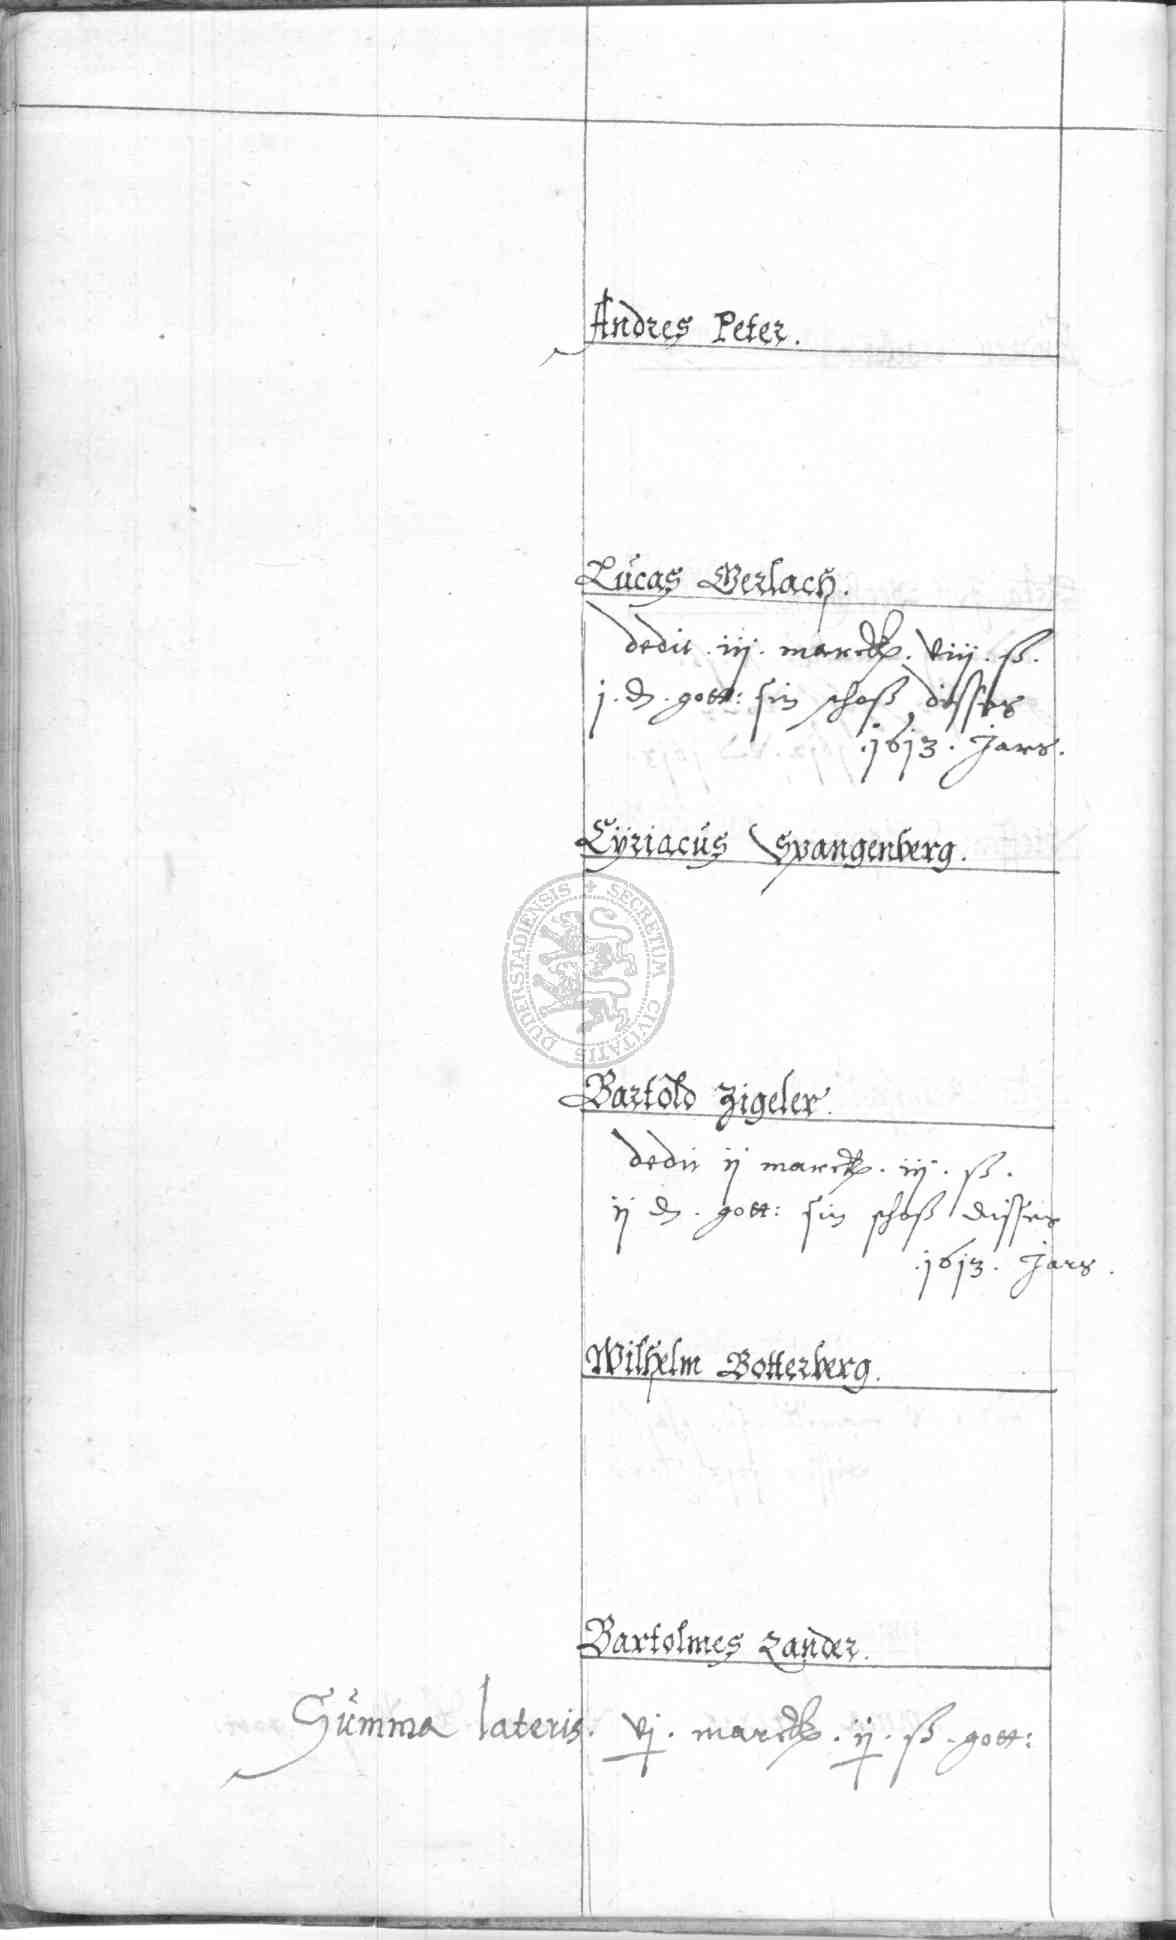 Andres Peter.
Lucas Gerlach.
dedit . iij . marck . viij . ß .
j . ₰ . gott: sin schoß disses
. 1613 . Jars .
Cÿriacus Spangenberg .
SECRETUM CIVITATIS DUDERSTADIENSIS
Bartold Zigeler .
dedit ij marck . iij . ß .
ij ₰ . gott: sin schoß disses
. 1613 . Jars .
Wilhelm Botterberg .
Bartolmes Zander .
Summa lateris . vj . marck . ij . ß . gott: